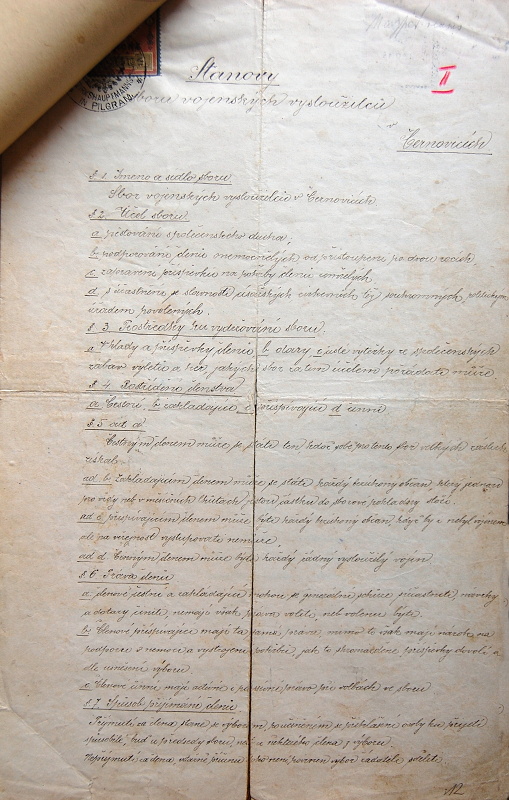 II
N PILGRAM
Stanovy
sboru vojenských vysloužilců
v
Černovicích
§ 1. Jméno a sídlo sboru.
Sbor vojenských vysloužilců v Černovicích
§ 2. Účel sboru
a pěstování společenského ducha,
b podporování členů onemocnělých od přistoupení po dvou rocích,
c zapravení příspěvku na potřeby členů zemřelých,
d súčastnění se slavností císařských církevních též soukromných politickým
úřadem povolených.
§. 3. Prostředky ku vydržování sboru.
a Vklady a příspěvky členů b dary c jisté výtěžky ze společenských
zábav výletů a t.d. jakých sbor za tím účelem pořádati může
§ 4. Rozdělení členstva
a Čestní, b zakládající c přispívající d činní
§ 5 ad a
Čestným členem může se státi ten kdož sobě pro tento sbor velkých zásluh
získal
ad b Zakládajícím členem může se státi každý bezúhonný občan, který jednou
pro vždy neb v měsíčních lhůtách jistou částku do sborové pokladny složí.
ad c přispívajícím členem může býti každý bezúhonný občan když by i nebyl vojínem
ale na veřejnost vystupovati nemůže
ad d Činným členem může býti každý řádný vysloužilý vojín
§ 6 Práva členů
a, členové čestní a zakládající mohou se generální schůze súčastniti, návrhy
a dotazy činiti, nemají však práva voliti, neb voleni býti.
b, Členové přispívající mají ta samá práva, mimo to však mají nárok na
podporu v nemoci a vystrojení pohřbu, jak to shromážděné příspěvky dovolí a
dle usnesení výboru.
c Členové činní mají activní a passivní právo při volbách ve sboru
§ 7. Spůsob přijímání členů
Přijmutí za člena stane se výborem
spůsobilé, buď u předsedy sboru, neb u některého člena z výboru.
Nepřijmutí za člena, není povinen výbor žadateli sděliti.
12